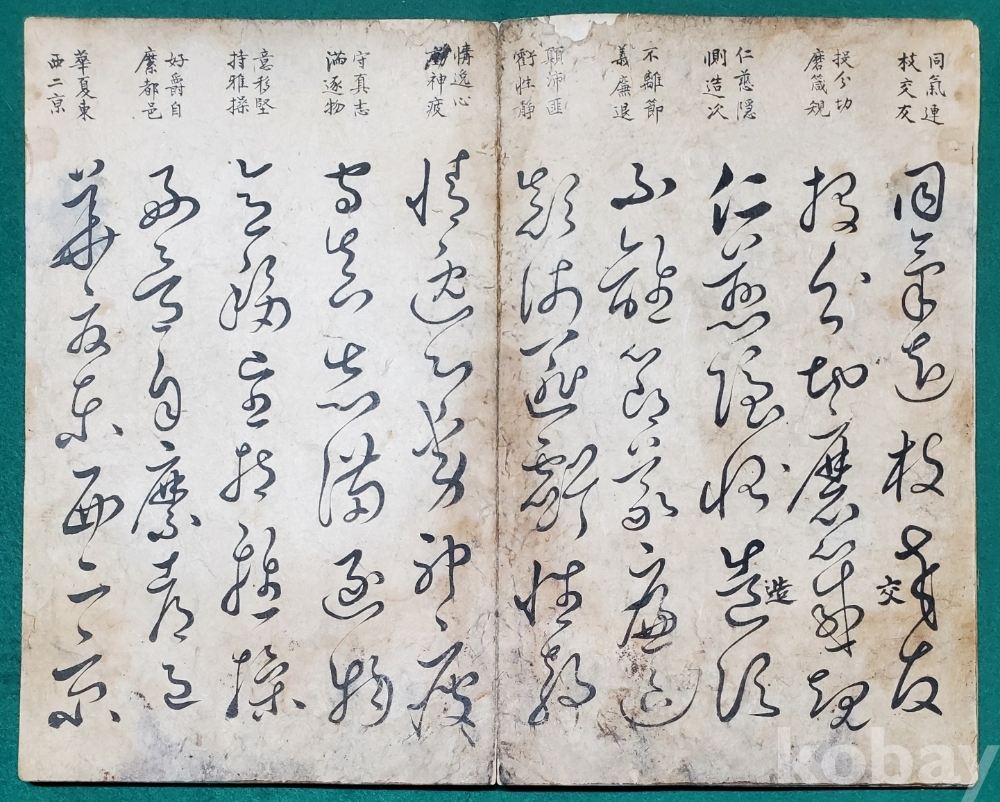 同氣連
枝交友
投分切
磨箴規
仁慈隱
惻造次
不離節
義廉退
顛沛匪
虧性靜
情逸心
動神疲
守真志
滿逐物
意移堅
持雅操
好爵自
縻都邑
華夏東
西二京
同氣連枝交友
交
投分切磨箴規
仁慈隱惻造次
造
不離節義廉退
顛沛匪虧性靜
情逸心動神疲
守真志滿逐物
意移堅持雅操
好爵自縻都邑
華夏東西二京
kobay